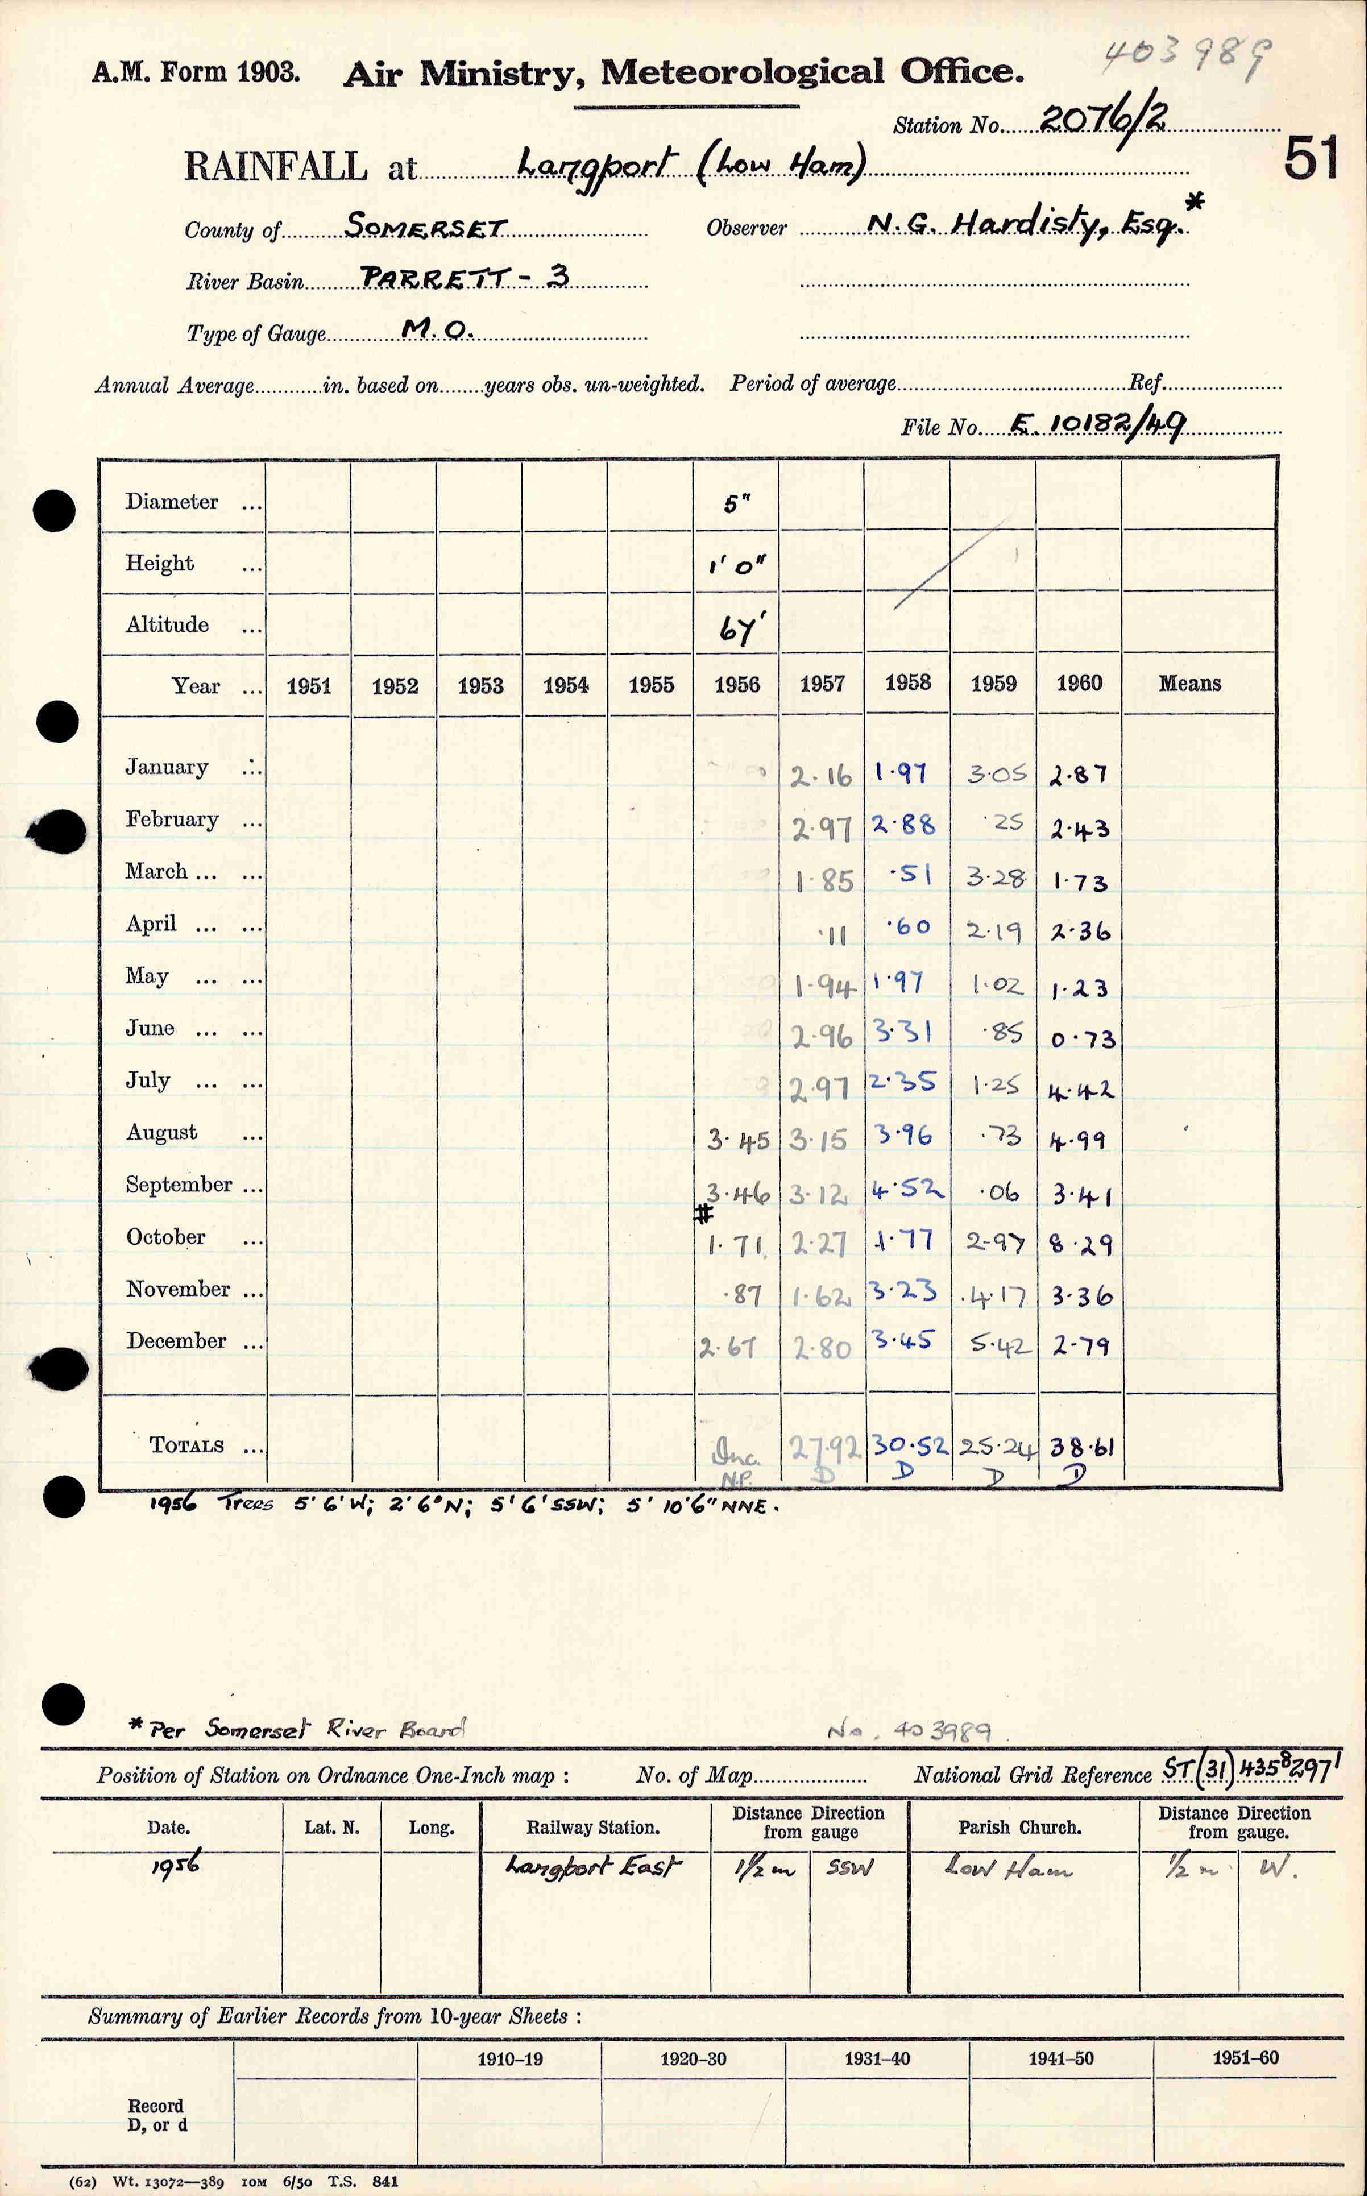 403989
A.M. Form 1903. Air Ministry, Meteorological Office.
Station No. 2076/2
51
RAINFALL at Langport (Low Ham)
County of SOMERSET Observer N. G. Hardisty, Esq.*
River Basin PARRETT - 3
Type of Gauge M.O.
Annual Average in. based on years obs. un-weighted. Period of average Ref.
File No. E. 10182/49
Diameter ... 5"
Height ... 1' 0"
Altitude ... 67'
Year ... 1951 1952 1953 1954 1955 1956 1957 1958 1959 1960 Means
January ... 2.16 1.97 3.05 2.87
February ... 2.97 2.88 .25 2.43
March ... ... 1.85 .51 3.28 1.73
April ... ... .11 .60 2.19 2.36
May ... ... 1.94 1.97 1.02 1.23
June ... ... 2.96 3.31 .85 0.73
July ... ... 2.97 2.35 1.25 4.42
August ... 3.45 3.15 3.96 .73 4.99
September ... 3.46 3.12 4.52 .06 3.41
#
October ... 1.71 2.27 1.77 2.97 8.29
November ... .87 1.62 3.23 4.17 3.36
December ... 2.67 2.80 3.45 5.42 2.79
TOTALS ... Inc. 27.92 30.52 25.24 38.61
N.P. D D D D
1956 Trees 5' 6' W; 2' 6" N; 5' 6' SSW; 5' 10' 6" NNE.
* Per Somerset River Board No. 403989.
Position of Station on Ordnance One-Inch map : No. of Map National Grid Reference ST (31) 4358 2971
Date. Lat. N. Long. Railway Station. Distance Direction from gauge Parish Church. Distance Direction from gauge.
1956 Langport East 1½ m SSW Low Ham ½ m W.
Summary of Earlier Records from 10-year Sheets :
1910–19 1920–30 1931–40 1941–50 1951–60
Record
D, or d
(62) Wt. 13072—389 10M 6/50 T.S. 841